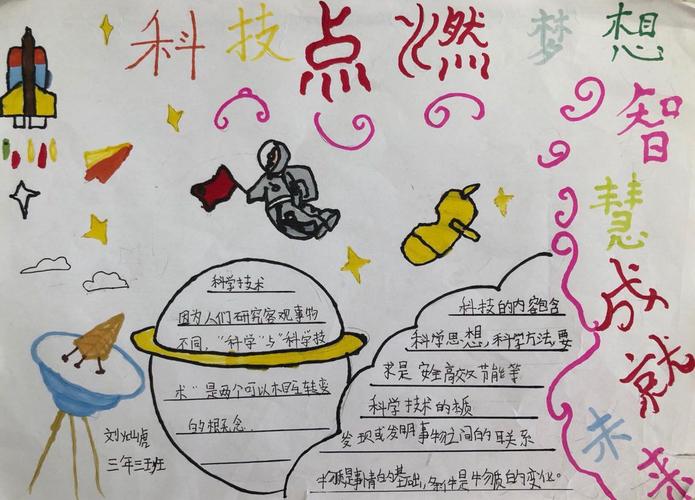 科技点燃梦想
智慧成就未来
科学技术
因为人们研究客观事物
不同,“科学”与“科学技
术”是两个可以相互转变
的概念
科技的内容包含
科学思想,科学方法,要
求是安全高效节能等
科学技术的本质
发现或发明事物之间的联系
物质是事情的基础,条件是物质的变化。
三年三班